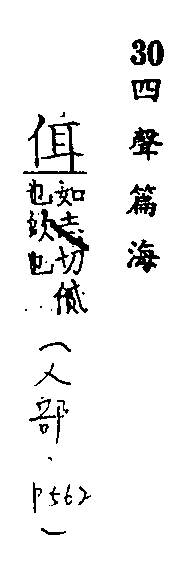 30四聲篇海
佴
如志切
也
也…
(人部·
P562)